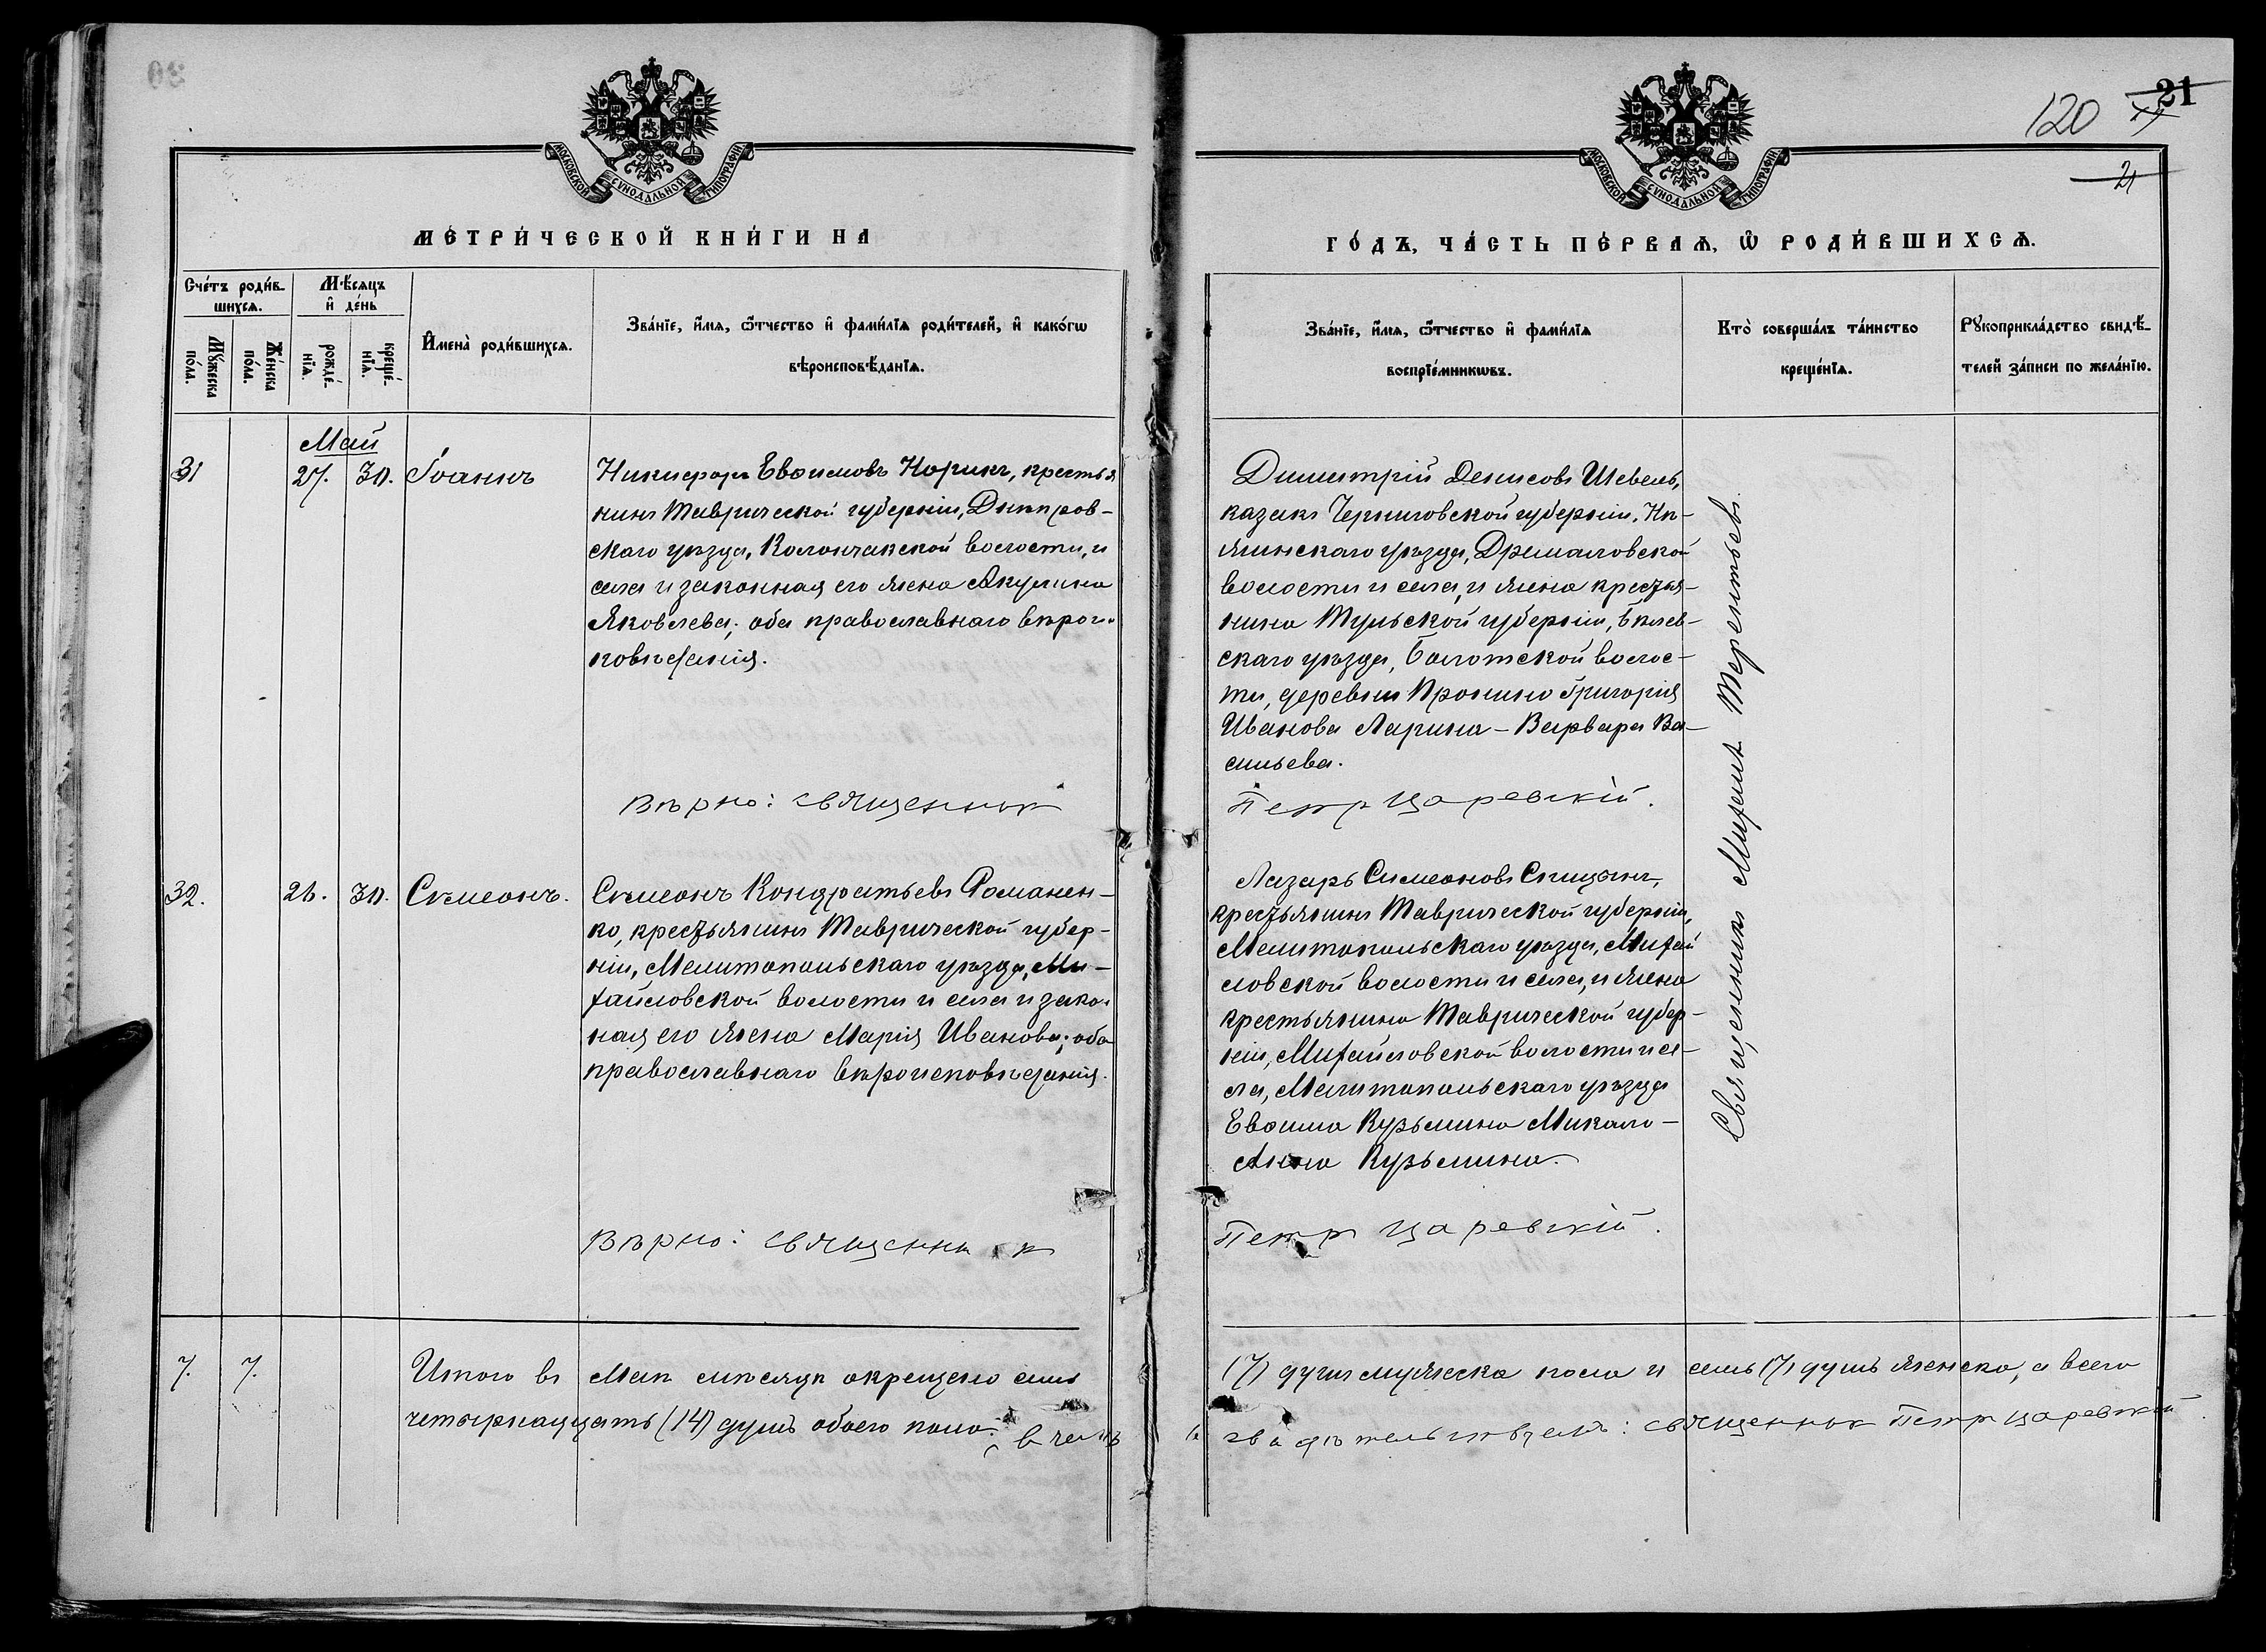 120 21
21
МОСКОВСКОЙ СѴНОДАЛЬНОЙ ТИПОГРАФІИ
МЕТРИ́ЧЕСКОЙ КНИ́ГИ НА
Сче́тъ роди́в-
шихсѧ.
Мꙋ́жеска
по́ла.
Же́нска
по́ла.
Мѣ́сѧцъ
и҆ де́нь
рожде́-
нїѧ.
креще́-
нїѧ.
И҆мена̀ роди́вшихсѧ.
Зва́нїе, и҆́мѧ, ѻ҆́тчество и҆ фами́лїѧ роди́телей, и҆ како́гѡ
вѣроисповѣ́данїѧ.
Май
31
27.
30.
Іоаннъ
Никифоръ Евѳимовъ Норикъ, крестья
нинъ Таврической губерніи, Днѣпров-
скаго уѣзда, Колончакской волости, и
села и законная его жена Акулина
Яковлева; оба православнаго вѣрои-
повѣданія.
Вѣрно: священник
32.
26.
30.
Сѵмеонъ.
Сѵмеонъ Кондратьевъ Романен-
ко, крестьянинъ Таврической губер-
ніи, Мелитопольскаго уѣзда, Ми-
хайловской волости и села и закон
ная его жена Марія Иванова; оба
православнаго вѣроисповѣданія.
Вѣрно: священник
7. 7.
Итого въ Маѣ мѣсяцѣ окрещено семь
четырнадцать (14) душъ обоего пола.
МОСКОВСКОЙ СѴНОДАЛЬНОЙ ТИПОГРАФІИ
ГО́ДЪ, ЧА́СТЬ ПЕ́РВАѦ, Ѡ҆ РОДИ́ВШИХСѦ.
Зва́нїе, и҆́мѧ, ѻ҆́тчество и҆ фами́лїѧ
воспрїе́мникѡвъ.
Кто̀ соверша́лъ та́инство
креще́нїѧ.
Рꙋкоприкла́дство свидѣ́-
телей за́писи по жела́нїю.
Димитрій Денисовъ Шевель,
казакъ Черниговской губерніи, Нѣ-
жинскаго уѣзда, Дремаловской
волости и села, и жена крестья-
нина Тульской губерніи, Бѣлев-
скаго уѣзда, Болотской волос-
ти, деревни Пронино Григорія
Иванова Ларина - Варвара Ва-
сильева.
Петр Царевскій.
Лазарь Симеоновъ Спицынъ,
крестьянинъ Таврической губерніи,
Мелитопольскаго уѣзда, Михай
ловской волости и села, и жена
крестьянина Таврической губер-
ніи, Михайловской волости и се-
ла, Мелитопольскаго уѣзда
Евѳима Кузьмина Микало -
Анна Кузьмина.
Петр Царевскій.
Священникъ Михаилъ Терентьевъ.
(7) душъ мужеска пола и семь (7) душъ женска, а всего
свидѣтельствуетъ: священник Петр Царевскій.